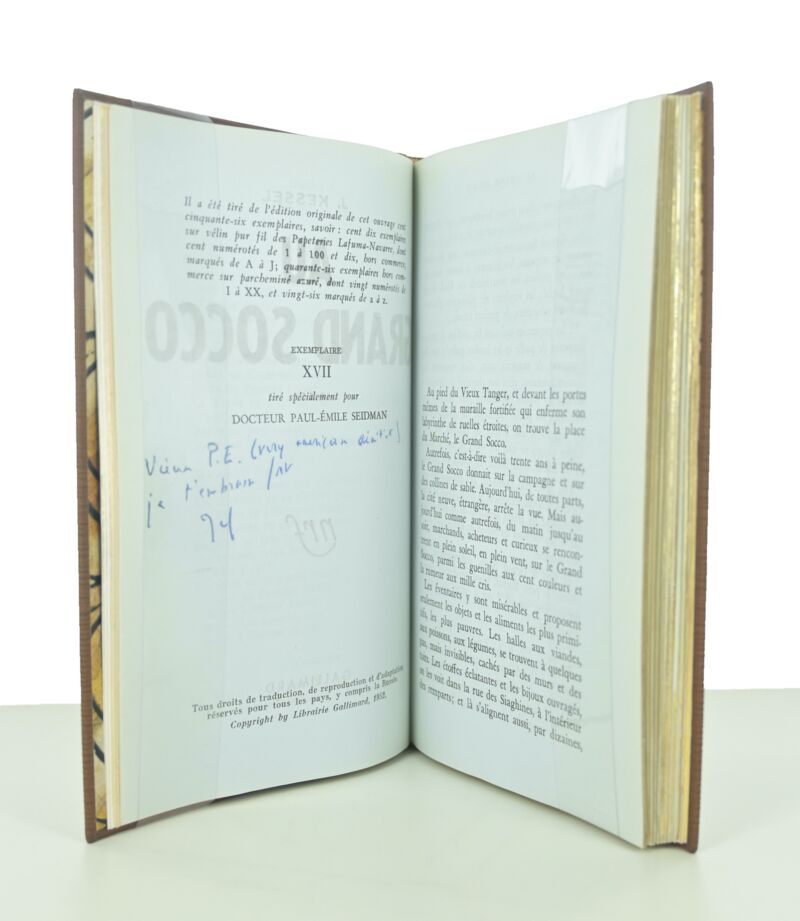 Il a été tiré de l'édition originale de cet ouvrage cent
cinquante-six exemplaires, savoir : cent dix exemplaires
sur vélin pur fil des Papeteries Lafuma-Navarre, dont
cent numérotés de 1 à 100 et dix, hors commerce,
marqués de A à J; quarante-six exemplaires hors com-
merce sur parcheminé azuré, dont vingt numérotés de
I à XX, et vingt-six marqués de a à z.
J. KESSEL
AU
GRAND SOCCO
EXEMPLAIRE
XVII
tiré spécialement pour
DOCTEUR PAUL-ÉMILE SEIDMAN
Vieux P.E. (very american
je t'embrasse
Jef
nrf
GALLIMARD
Tous droits de traduction, de reproduction et d'adaptation
réservés pour tous les pays, y compris la Russie.
Copyright by Librairie Gallimard, 1952.
Au pied du Vieux Tanger, et devant les portes
mêmes de la muraille fortifiée qui enferme son
labyrinthe de ruelles étroites, on trouve la place
du Marché, le Grand Socco.
Autrefois, c'est-à-dire voilà trente ans à peine,
le Grand Socco donnait sur la campagne et sur
des collines de sable. Aujourd'hui, de toutes parts,
la cité neuve, étrangère, arrête la vue. Mais au-
jourd'hui comme autrefois, du matin jusqu'au
soir, marchands, acheteurs et curieux se rencon-
trent en plein soleil, en plein vent, sur le Grand
Socco, parmi les guenilles aux cent couleurs et
la rumeur aux mille cris.
Les éventaires y sont misérables et proposent
seulement les objets et les aliments les plus primi-
tifs, les plus pauvres. Les halles aux viandes,
aux poissons, aux légumes, se trouvent à quelques
pas, mais invisibles, cachés par des murs et des
Les étoffes éclatantes et les bijoux ouvragés,
on les voit dans la rue des Siaghines, à l'intérieur
des remparts; et là s'alignent aussi, par dizaines,